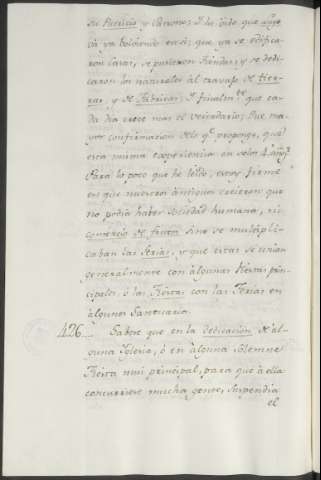 su Patricio y Patrono; I ha oido que aunq
va ya bolviendo en si; que ya se edifica-
ron casas, se pusieron tiendas, y se dedi-
caron los naturales al travajo de tier-
ras, y de Fabricas; I finalm.te que ca-
da dia crece mas el vecindario; Que ma-
yor confirmacion de lo q.e propongo, que
esta misma experiencia en solos 4. años?
Para lo poco que he leìdo, estoy firme
en que nuestros antiguos creieron que
no podia haber sociedad humana, ni
comercio de frutos sino se multipli-
caban las ferias, y que estas se unian
generalmente con algunas fiestas prin-
cipales, ó las Fiestas con las Ferias en
algunos Santuarios.
426 Sabese que en la dedicacion de al-
guna Iglesia, ó en alguna solemne
Fiesta mui principal, para que à ella
concurriese mucha gente, suspendia
el